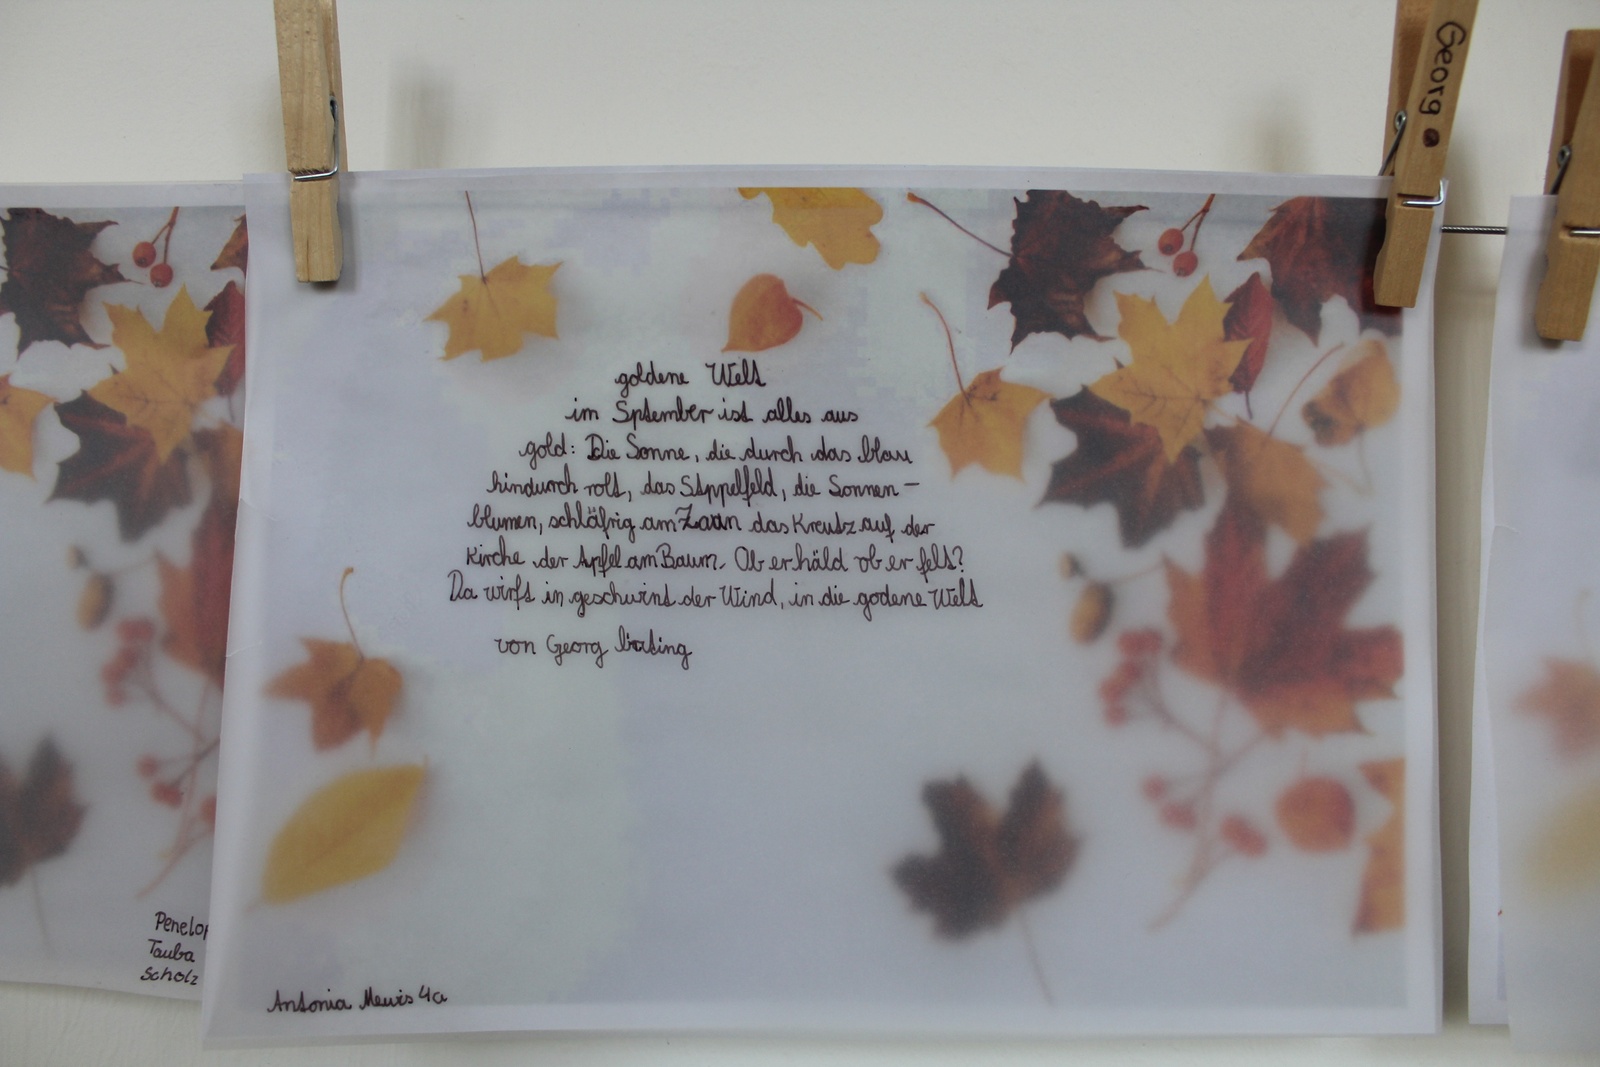 Georg
goldene Welt
im September ist alles aus
gold: Die Sonne, die durch das blau
hindurch rolt, das Stppelfeld, die Sonnen-
blumen, schläfrig am Zaun das Kreutz auf der
Kirche der Apfel am Baum. Ob er häld ob er felt?
Da wirft in geschwind der Wind, in die godene Welt
von Georg britting
Penelop
Tauba
Scholz
Antonia Mewis 4a